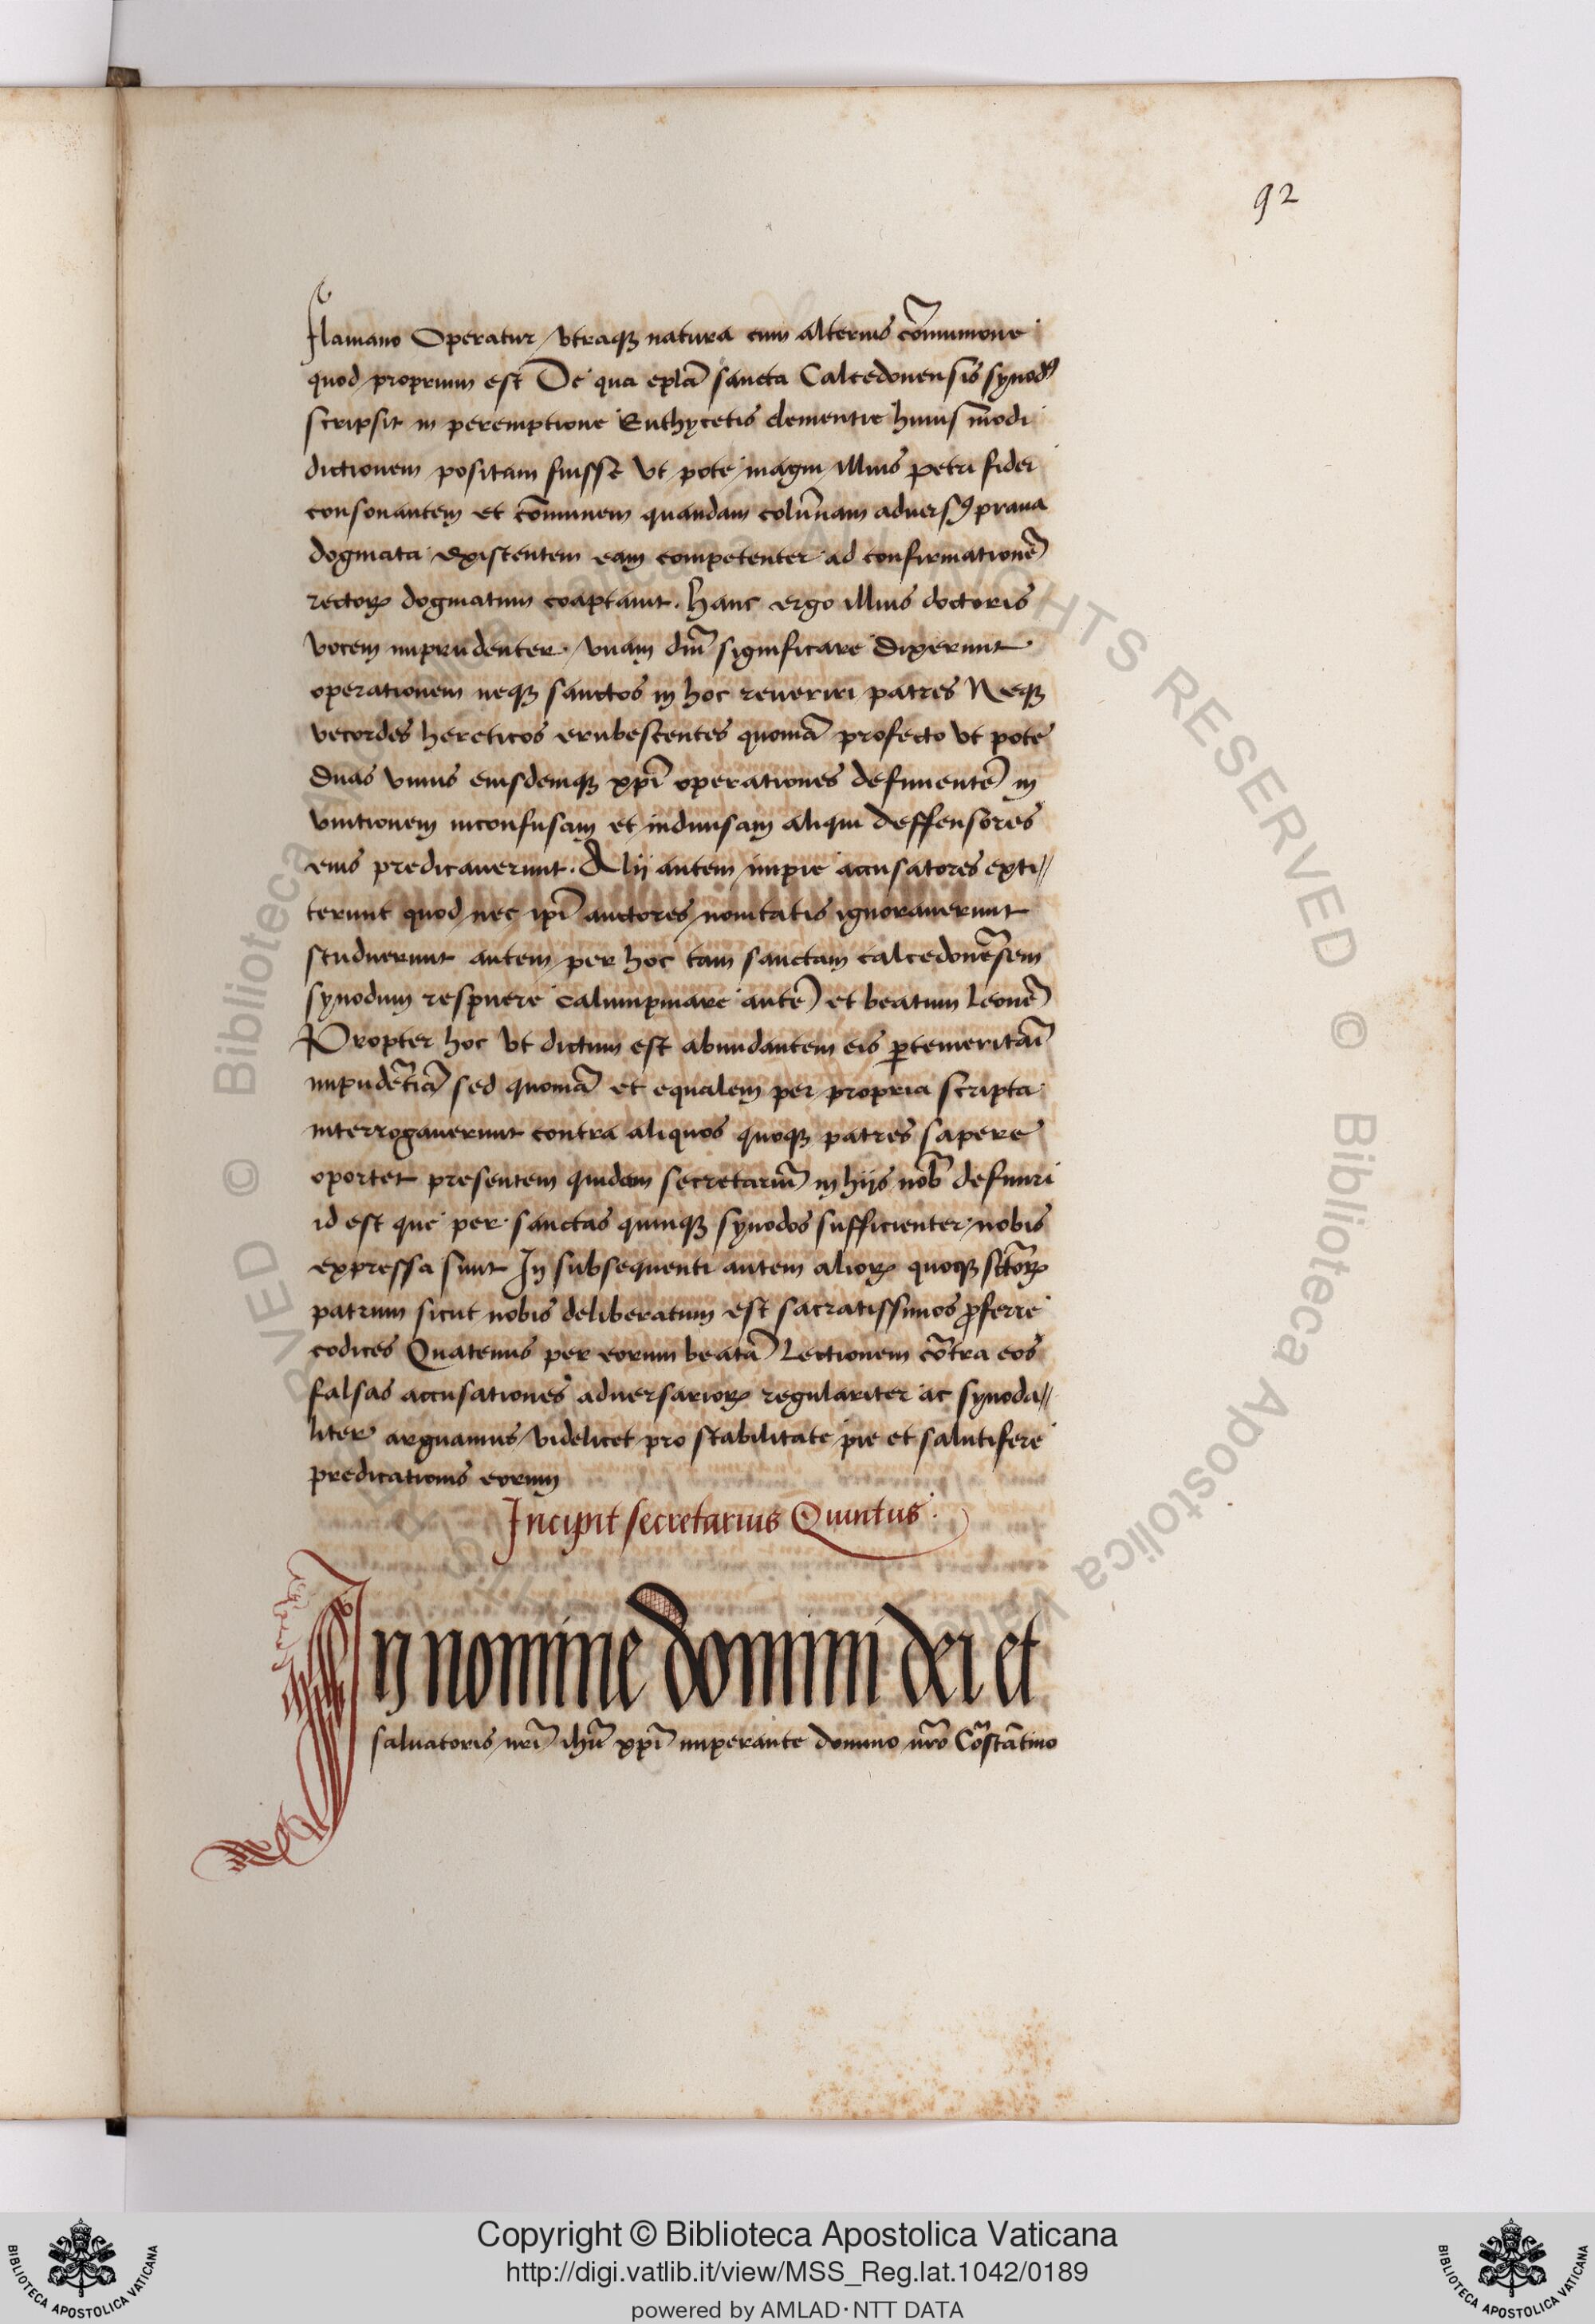 92
flauiano Operatur vtraqꝫ natura cum alterius cōmunione
quod proprium est De qua explā sancta Calcedonensis synodꝰ
scripsit in peremptione Euthycetis clementie huiusmōdi
dictionem positam fuisse vt pote magni illius petri fidei
consonantem et cōmunem quandam colūnam aduersꝰ praua
dogmata existentem eam competenter ad confirmationē
rectoꝝ dogmatum coaptauit. Hanc ergo illius doctoris
vocem imprudenter vnam dm̄ significare dixerunt
operationem neqꝫ sanctos in hoc reueriri patres Neqꝫ
vecordes hereticos erubescentes quoniā profecto vt pote
duas vnius eiusdemqꝫ xp̄i operationes defimentē in
vnitionem inconfusam et indiuisam aliqui deffensores
eius predicauerunt. Alij autem impie accusatores exti//
terunt quod nec ip̄i auctores nouitatis ignorauerunt
studuerunt autem per hoc tam sanctam calcedonēsem
synodum respuere calumpniare autē et beatum Leonē
Propter hoc vt dictum est abundantem eis ꝑtemeritāī
impudētiā sed quoniā et equalem per propria scripta
interrogauerunt contra aliquos quoqꝫ patres sapere
oportet presentem quidem secretariū in hijs nob̄ definiri
id est que per sanctas quinqꝫ synodos sufficienter nobis
expressa sunt In subsequenti autem alioꝝ quoqꝫ sc̄toꝝ
patrum sicut nobis deliberatum est sacratissimos ꝓferre
codices Quatenus per eorum beatā Lectionem cōtra eos
falsas accusationes aduersarioꝝ regulariter ac synoda//
liter arguamus videlicet pro stabilitate pie et salutifere
predicationis eorum
Incipit secretarius Quintus
In nomine domini dei et
saluatoris nr̄i ihū xp̄i imperante domino nr̄o Cōstātino
Copyright © Biblioteca Apostolica Vaticana
http://digi.vatlib.it/view/MSS_Reg.lat.1042/0189
powered by AMLAD·NTT DATA
BIBLIOTECA APOSTOLICA VATICANA
BIBLIOTECA APOSTOLICA VATICANA